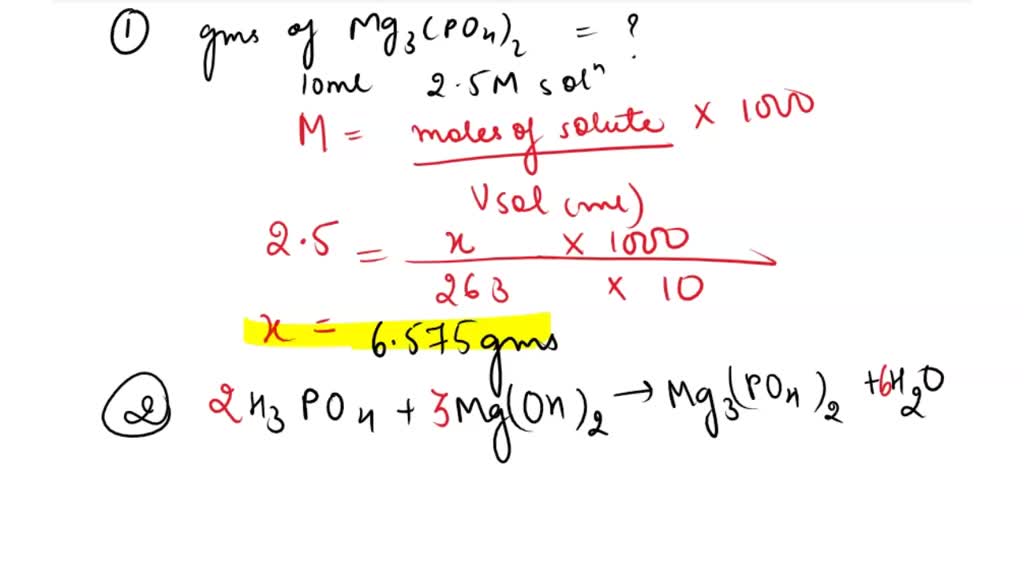 ① gms of Mg₃(PO₄)₂ = ?
10ml 2.5M solⁿ
M = moles of solute × 1000
Vsol (ml)
2.5 = x × 1000
263 × 10
x = 6.575gms
② 2H₃PO₄ + 3Mg(OH)₂ → Mg₃(PO₄)₂ + 6H₂O